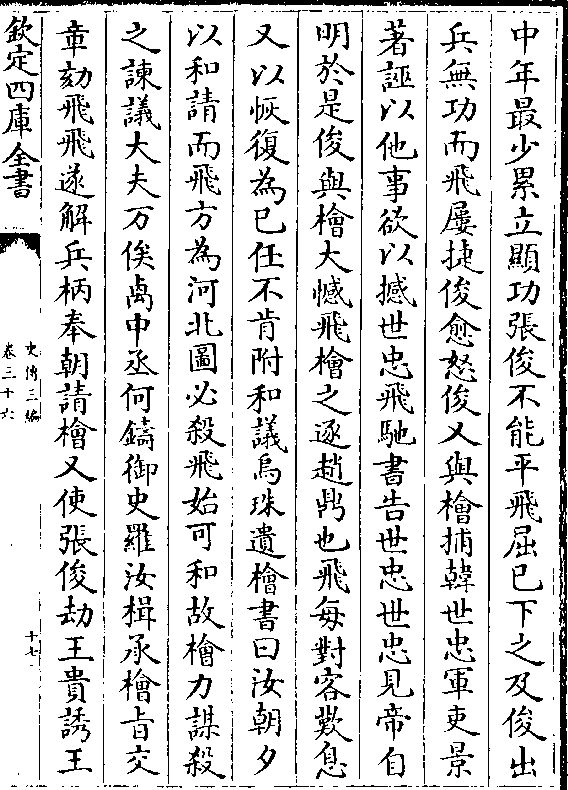 中年最少累立顯功張俊不能平飛屈已下之及俊出
兵無功而飛屢捷俊愈怒俊又與檜捕韓世忠軍吏景
著誣以他事欲以撼世忠飛馳書告世忠世忠見帝自
明於是俊與檜大憾飛檜之逐趙鼎也飛每對客歎息
又以恢復為已任不肯附和議烏珠遺檜書曰汝朝夕
以和請而飛方為河北圖必殺飛始可和故檜力謀殺
之諫議大夫万俟卨中丞何鑄御史羅汝楫承檜旨交
章劾飛飛遂解兵柄奉朝請檜又使張俊劫王貴誘王
欽定四庫全書
史傳三編
卷三十六
十七